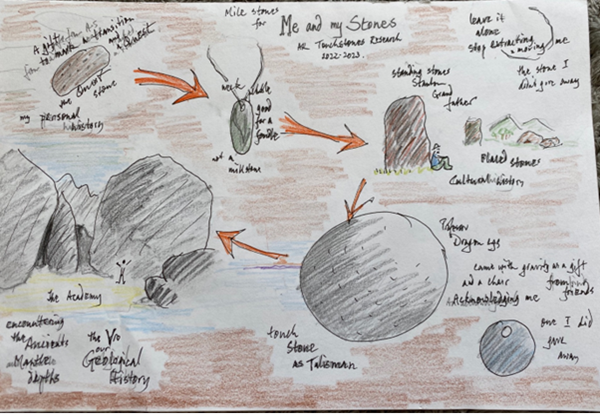 Mile stones
for
Me and my Stones
AR Touchstones Research
2022-2023
A gift from As
to mark a transition
and
Onver
stone
me
my personal
history
neck
good
for a
not a
millstone
standing stones
Stanton
Grand
father
Placed stones
Cultural history
leave it
alone
stop extracting
& moving me
the stone I
didn't give away
Dragon egg
came with gravity as a gift
and a chair from long
friends
Acknowledging me
one I did
give
away
touch
Stone
as Talisman
The Academy
encountering
the Ancients
depths
The
our
Geological
History